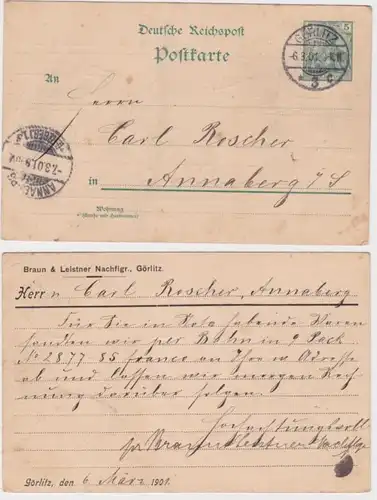 Deutsche Reichspost
Postkarte
5
GÖRLITZ
-6.3.01
3 c
An
Herrn
Carl Roscher
-7.3.01
in Annaberg i/S
Wohnung
(Straße und Hausnummer)
Braun & Leistner Nachflgr., Görlitz.
Herrn Carl Roscher, Annaberg
Für Sie in Nota habende Waren
sandten wir per Bahn in 9 Pack
No 28 77 85 franco an Ihre w. Adresse
ab und lassen wir morgen Rech
nung darüber folgen.
Hochachtungsvoll
Braun & Leistner Nachflgr
Görlitz, den 6 März 1901.